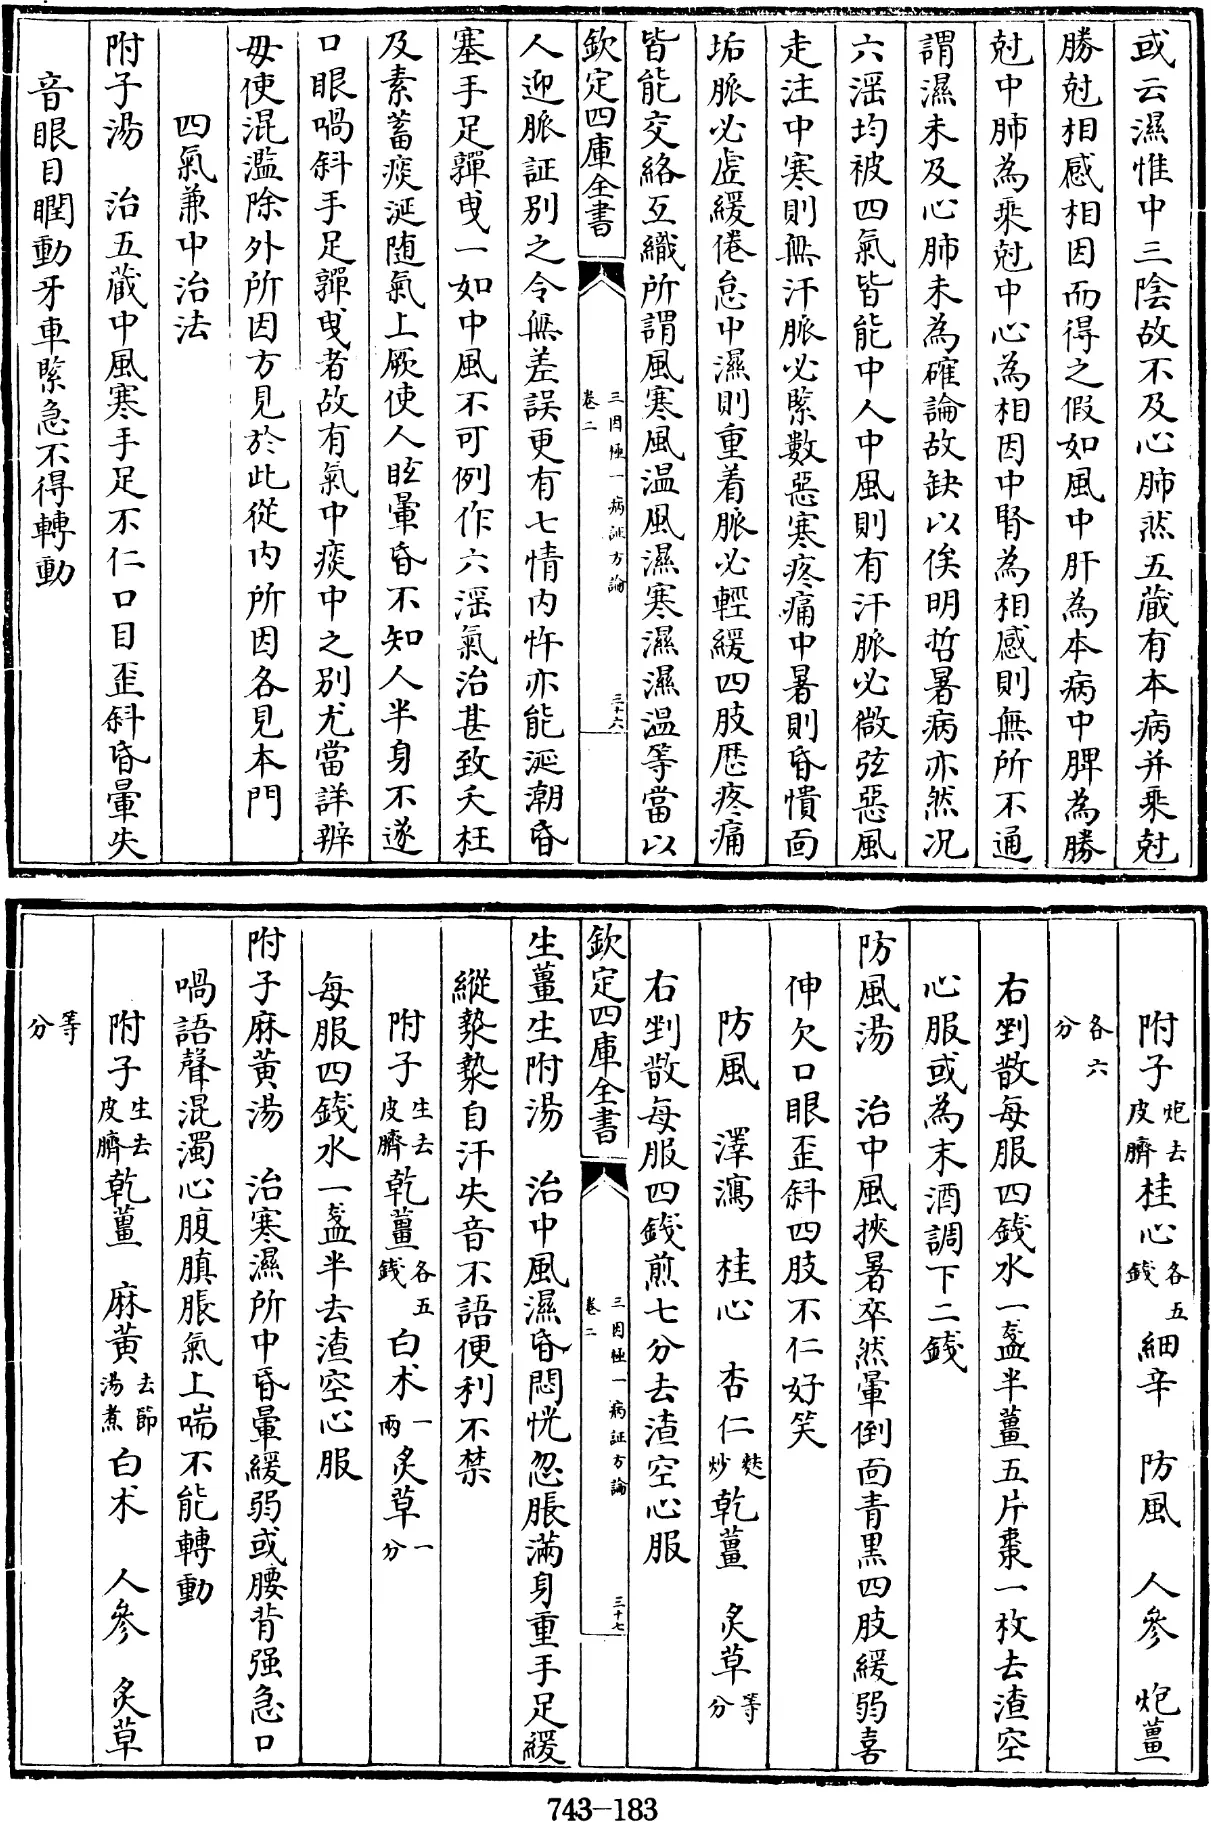 或云濕惟中三陰故不及心肺然五蔵有本病并乗尅
勝尅相感相因而得之假如風中肝為本病中脾為勝
尅中肺為乗尅中心為相因中腎為相感則無所不通
謂濕未及心肺未為確論故缺以俟明哲暑病亦然况
六淫均被四氣皆能中人中風則有汗脈必微弦惡風
走注中寒則無汗脈必緊數惡寒疼痛中暑則昏憒面
垢脈必虚緩倦怠中濕則重着脈必輕緩四肢歴疼痛
皆能交絡互織所謂風寒風温風濕寒濕濕温等當以
欽定四庫全書
三因極一病証方論
卷二
三十六
人迎脈証别之令無差誤更有七情内忤亦能涎潮昏
塞手足嚲曵一如中風不可例作六淫氣治甚致夭枉
及素蓄痰涎随氣上厥使人眩暈昏不知人半身不遂
口眼喎斜手足嚲曵者故有氣中痰中之别尤當詳辨
毋使混濫除外所因方見於此從内所因各見本門
四氣兼中治法
附子湯　治五蔵中風寒手足不仁口目歪斜昏暈失
音眼目瞤動牙車緊急不得轉動
附子炮去皮臍桂心各五錢細辛　防風　人參　炮薑
各六分
右剉散每服四錢水一盞半薑五片棗一枚去渣空
心服或為末酒調下二錢
防風湯　治中風挾暑卒然暈倒面青黒四肢緩弱喜
伸欠口眼歪斜四肢不仁好笑
防風　澤瀉　桂心　杏仁麸炒乾薑　炙草等分
右剉散每服四錢煎七分去渣空心服
欽定四庫全書
三因極一病証方論
卷二
三十七
生薑生附湯　治中風濕昏悶恍忽脹滿身重手足緩
縱漐漐自汗失音不語便利不禁
附子生去皮臍乾薑各五錢白朮一兩炙草一分
每服四錢水一盞半去渣空心服
附子麻黄湯　治寒濕所中昏暈緩弱或腰背强急口
喎語聲混濁心腹䐜脹氣上喘不能轉動
附子生去皮臍乾薑　麻黄去節湯煮白朮　人參　炙草
等分
743-183